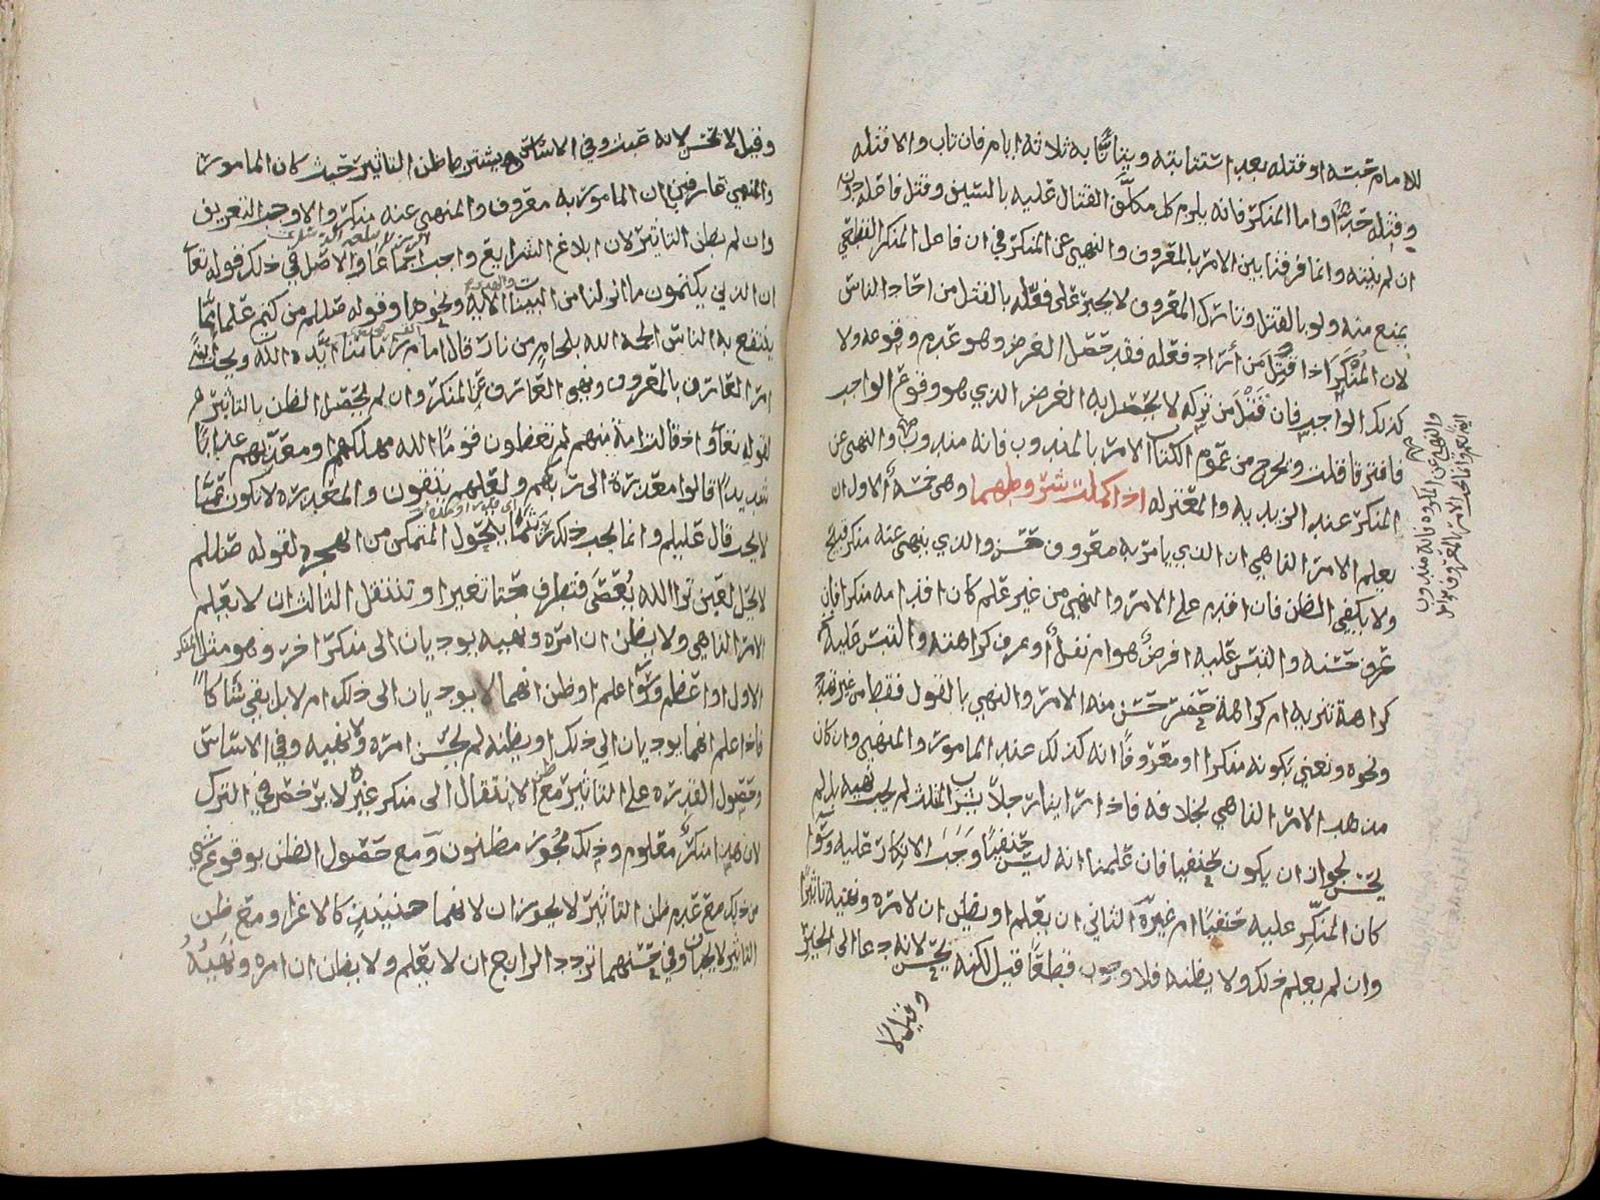 للامام حبسه او قتله بعد استتابته ويتأنا به ثلاثة ايام فان تاب والا قتله
وقتله حد واما المنكر فانه يلزم كل مكلف القتال عليه بالسيف وقتل فاعله
ان لم ينته وانما فرقنا بين الامر بالمعروف والنهي عن المنكر في ان فاعل المنكر القطعي
يمنع منه ولو بالقتل وتارك المعروف لا يجبر على فعله بالقتل من احاد الناس
لان المنكر اذا قتل من أراد فعله فقد حصل الغرض وهو عدم وقوعه ولا
كذلك الواجب فان قتل من تركه لا يحصل به الغرض الذي هو وقوع الواجب
فافترقا قلت ويخرج من عموم الكتاب الامر بالمندوب فانه مندوب والنهي عن
المنكر عند الزيدية والمعتزلة اذا كملت شروطهما وهي خمسة ألاول ان
يعلم الامر الناهي ان الذي يامر به معروف حسن والذي ينهى عنه منكر قبيح
ولا يكفي الظن فان اقدم على الامر والنهي من غير علم كان اقدامه منكرا فان
عرف حسنه والتبس عليه افرض هو ام نفل أو عرف كراهته والتبس عليه
كراهة تنزيه ام كراهة حضر حسن منه الامر والنهي بالقول فقط من غير تهديد
ونحوه ونعني بكونه منكرا او معروفا انه كذلك عند المامور والمنهي وان كان
مذهب الامر الناهي بخلافه فاذا راينا رجلا يشرب المثلث لم يجب نهيه بل لم
يحسن لجواز ان يكون حنفيا فان علمنا انه ليس حنفيا وجب الانكار عليه وسوا
كان المنكر عليه حنفيا ام غيره الثاني ان يعلم او يظن ان لامره ونهيه تاثيرا
وان لم يعلم ذلك ولا يظنه فلا وجوب قطعا قيل لكنه يحسن لانه دعا الى الخير
وقيل لا
والنهي عن المكروه فانه مندوب
وقيل لا يحسن لانه عبث وفي الاساس يشترط ظن التاثير حيث كان المامور
والمنهي عارفين ان المامور به معروف والمنهي عنه منكر والا وجب التعريف
وان لم يظن التاثير لان ابلاغ الشرايع واجب اجماعا والاصل في ذلك قوله تعا
ان الذين يكتمون ما انزلنا من البينات الاية ونحوها وقوله صللم من كتم علما مما
ينتفع به الناس الجمه الله بلجام من نار قال امامنا أيده الله ويجب
امر العارف بالمعروف ونهي العارف عن المنكر وان لم يحصل الظن بالتاثير
لقوله تعا واذ قالت امة منهم لم تعظون قوما الله مهلكهم او معذبهم عذابا
شديدا قالوا معذرة الى ربكم ولعلهم يتقون والمعذرة لا تكون عما
لا يجب قال عليلم وانما يجب ذلك لتحول المتمكن من الهجرة لقوله صللم
لا يحل لعين ترا الله يعصى فتطرف حتا تغير او تنتقل الثالث ان لا يعلم
الامر الناهي ولا يظن ان امره ونهيه يوديان الى منكر اخر وهو مثل المنكر
الاول او اعظم وسوا علم او ظن انهما لا يوديان الى ذلك ام لا بل بقي شاكا
فاذا علم انهما يوديان الى ذلك او يظنه لم يحسن امره ولا نهيه وفي الاساس
وحصول القدرة على التاثير مع ظن الانتقال الى منكر غيره لا يرخص في الترك
لان هذا منكر معلوم وذلك مجوز مظنون ومع حصول الظن بوقوع شي
من ذلك مع عدم ظن التاثير لا يجوزان لانهما حينئذ كالاغرا ومع ظن
التاثير لا يجبان وفي حسنهما تردد الرابع ان لا يعلم ولا يظن ان امره ونهيه